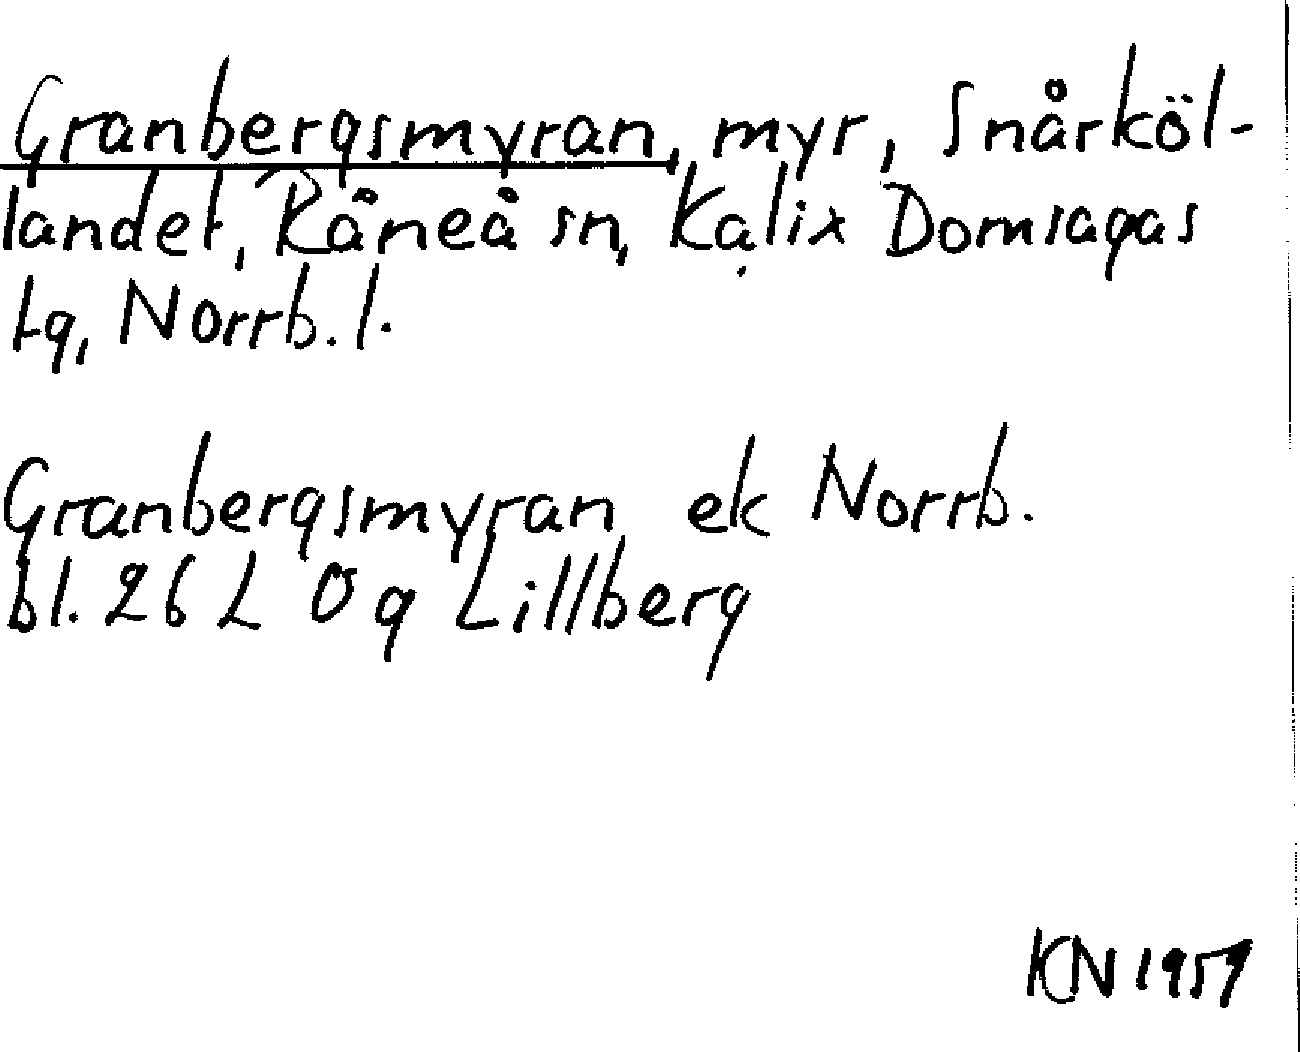 Granbergsmyran, myr, Snårköl-
landet, Råneå sn, Kalix Domsagas
tg, Norrb. l.
Granbergsmyran ek Norrb.
bl. 26 L Ö g Lillberg
KN 1959